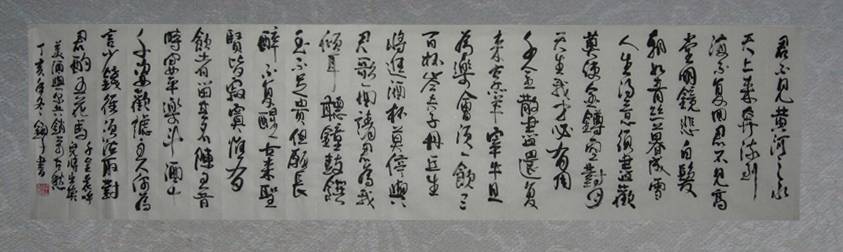 君不見黃河之水
天上來奔流到
海不復回君不見高
堂明鏡悲白髮
朝如青絲暮成雪
人生得意須盡歡
莫使金鐏空對月
天生我才必有用
千金散盡還復
來烹羊宰牛且
為樂會須一飲三
百杯岑夫子丹丘生
將進酒杯莫停與
君歌一曲請君為我
傾耳聽鐘鼓饌
玉不足貴但願長
醉不復醒古來聖
賢皆寂寞惟有
飲者留其名陳王昔
時宴平樂斗酒十
千恣歡謔主人何為
言少錢徑須沽取對
君酌五花馬
千金裘呼
兒將出換
美酒與爾同銷萬古愁
丁亥年冬 書